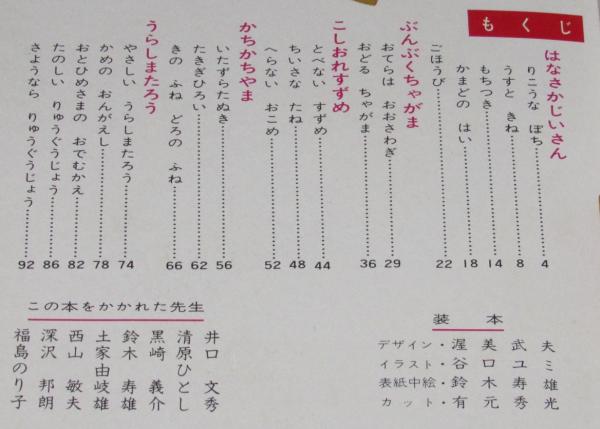 もくじ
はなさかじいさん
りこうな ぽち……4
うすと きね……8
もちつき……14
かまどの はい……18
ごほうび……22
ぶんぶくちゃがま
おてらは おおさわぎ……29
おどる ちゃがま……36
こしおれすずめ
とべない すずめ……44
ちいさな たね……48
へらない おこめ……52
かちかちやま
いたずらたぬき……56
たきぎひろい……62
きの ふね どろの ふね……66
うらしまたろう
やさしい うらしまたろう……74
かめの おんがえし……78
おとひめさまの おでむかえ……82
たのしい りゅうぐうじょう……86
さようなら りゅうぐうじょう……92
装本
デザイン・渥美武夫
イラスト・谷口ユミ
表紙中絵・鈴木寿雄
カット・有元秀光
この本をかかれた先生
井口文秀
清原ひとし
黒崎義介
鈴木寿雄
土家由岐雄
西山敏夫
深沢邦朗
福島のり子